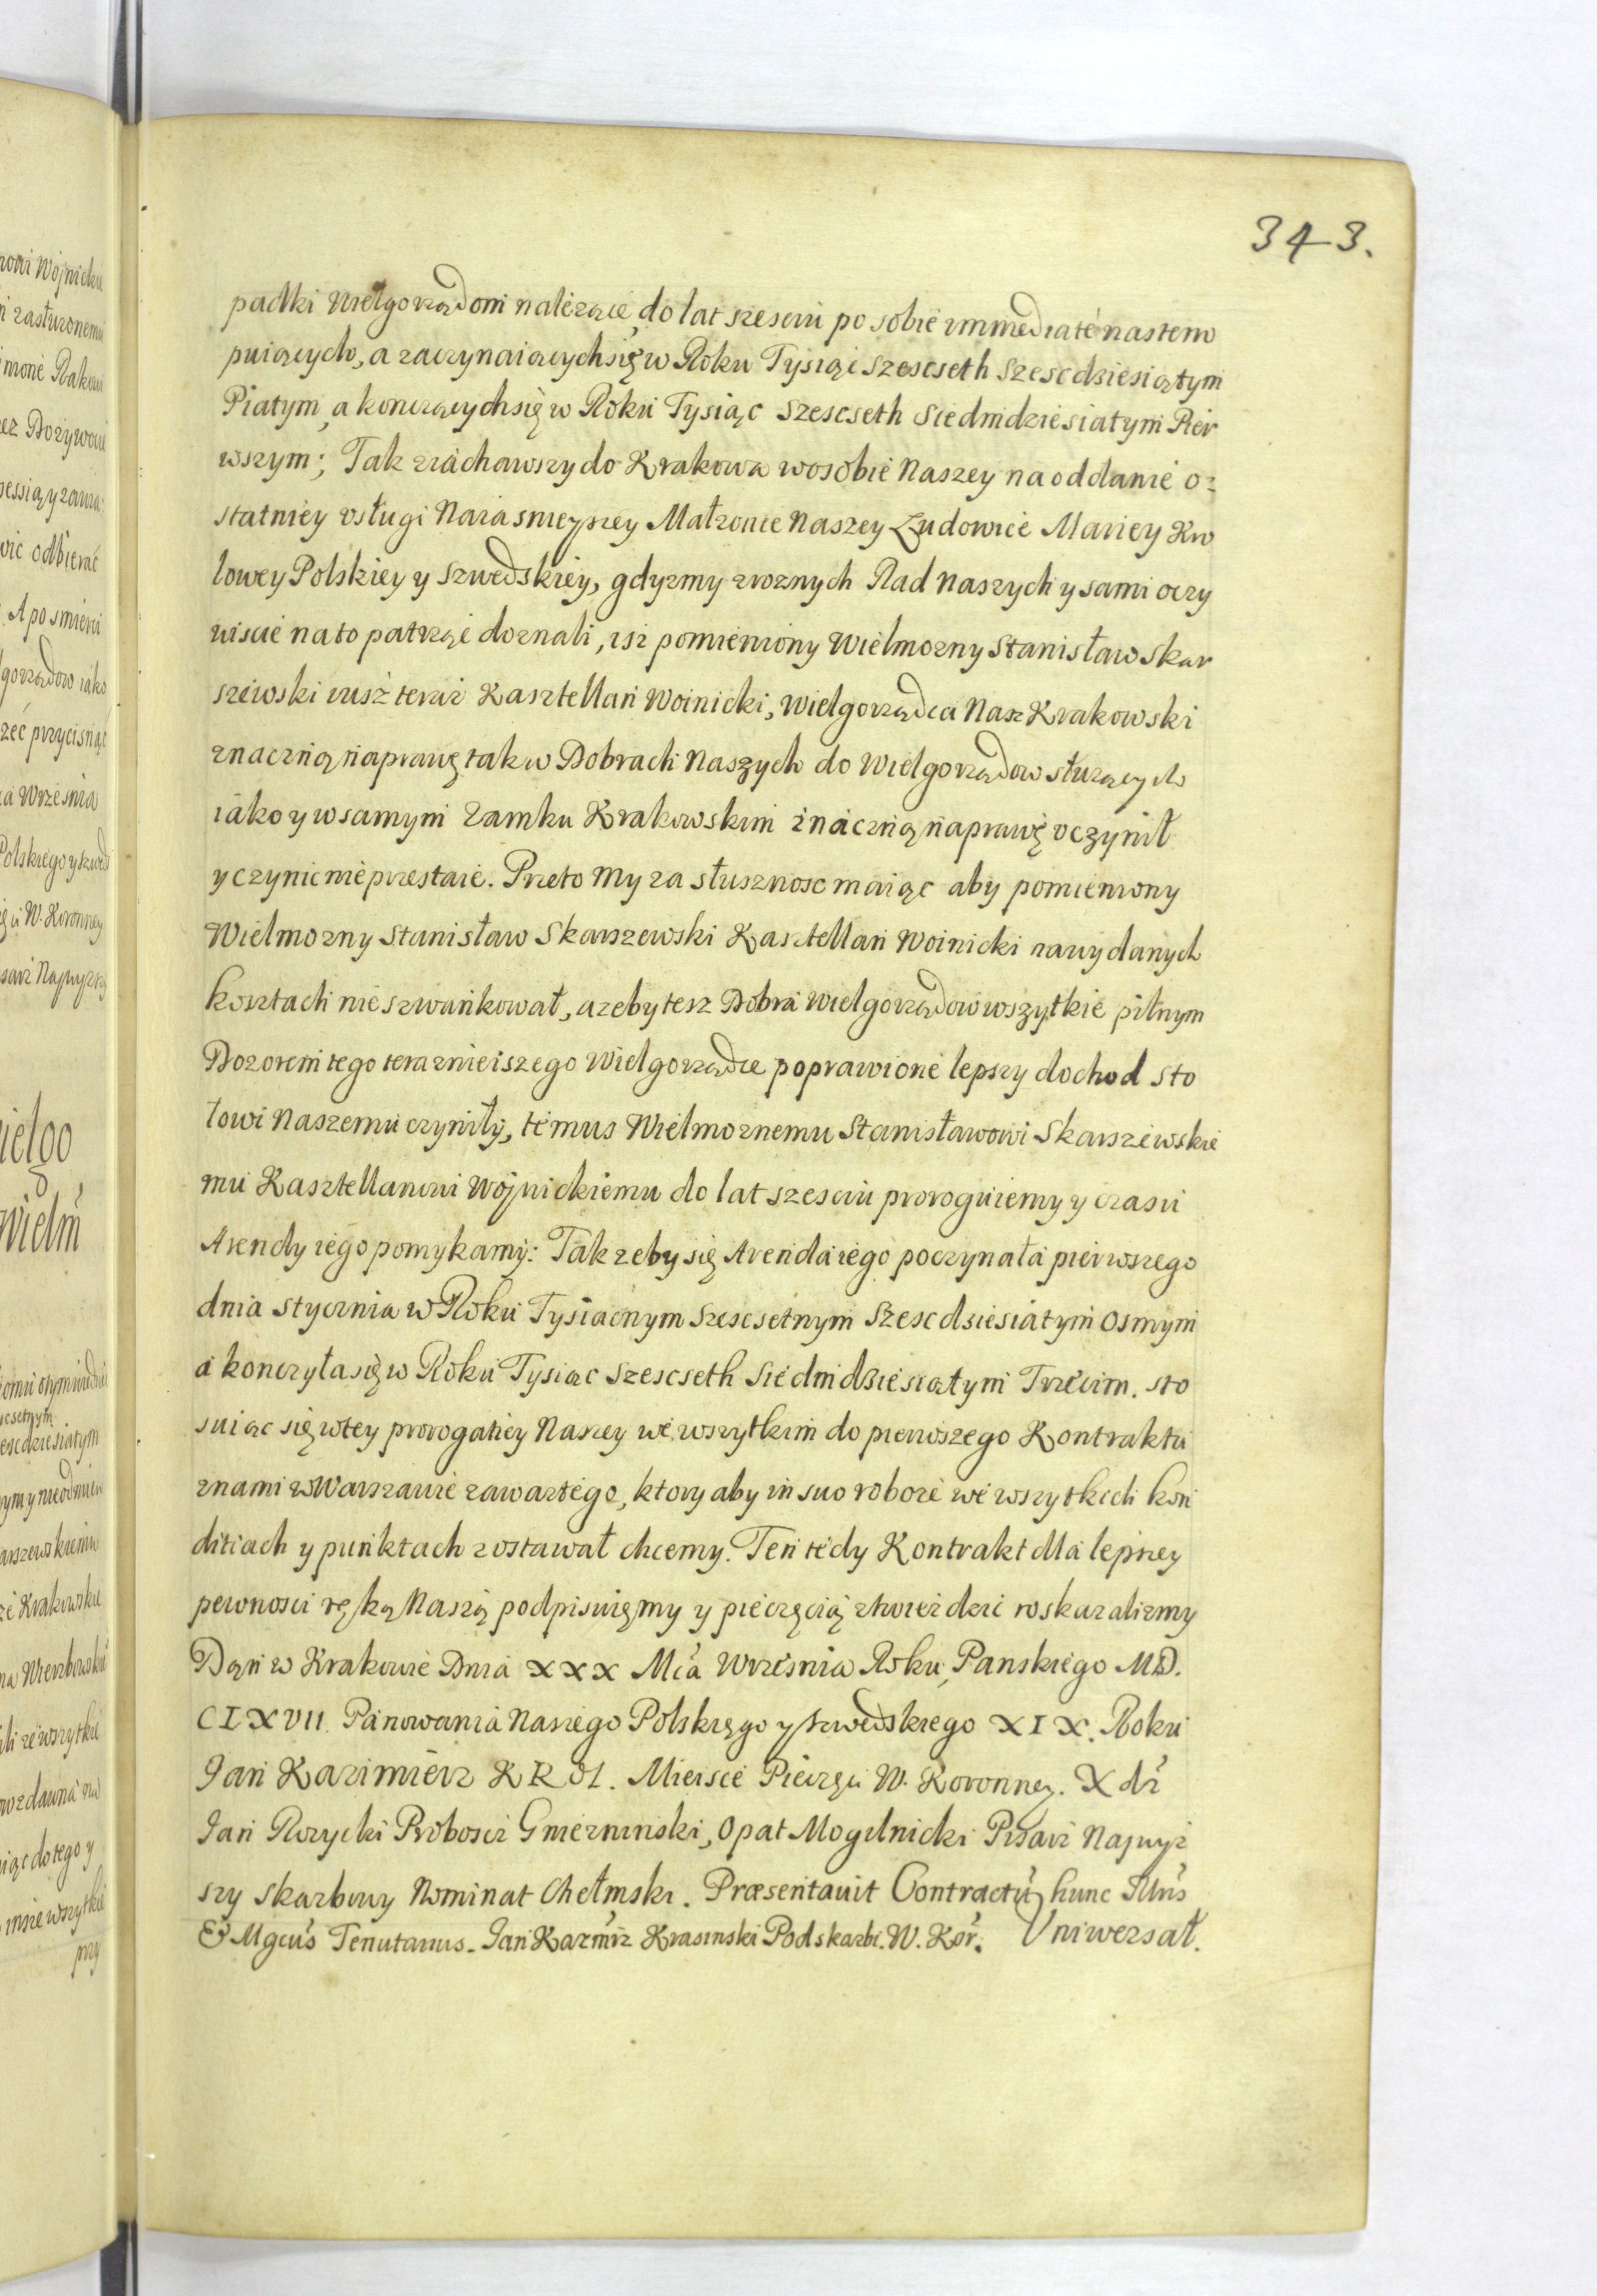 343.
padki Wielgorządom należące, do lat szesciu po sobie immediaté nastem
puiących, a zaczynaiących się w Roku Tysiąc szescseth szescdziesiątym
Piatym, a konczących się w Roku Tysiąc szescseth Siedmdziesiatym Pier
wszym; Tak ziachawszy do Krakowa w osobie Naszey na oddanie o=
statniey vsługi Naiasnieyszey Małzonce Naszey Ludowice Mariey Kro
lowey Polskiey y Szwedskiey, gdyzmy z roznych Rad naszych y sami oczy
wiscie na to patrząc doznali, isz pomieniony Wielmozny Stanisław Skar
szewski iusz teraz Kasztellan Woinicki, Wielgorządca Nasz Krakowski
znaczną naprawę tak w Dobrach Naszych do Wielgorządow słuzących
iako y w samym Zamku Krakowskim znaczną naprawę vczynił
y czynic nie przestaie. Przeto My za słusznosc maiąc aby pomieniony
Wielmozny Stanisław Skarszewski Kasztellan Woinicki na wydanych
kosztach nie szwankował, a zeby tesz Dobra Wielgorządow wszytkie pilnym
Dozorem tego teraznieiszego Wielgorządce poprawione lepszy dochod sto
łowi Naszemu czyniły, temus Wielmoznemu Stanisławowi Skarszewskie
mu Kasztellanowi Wojnickiemu do lat szesciu proroguiemy y czasu
Arendy iego pomykamy: Tak zeby się Arenda iego poczynała pierwszego
dnia stycznia w Roku Tysiacnym szescsetnym szescdsiesiatym osmym
a konczyła się w Roku Tysiac szescseth Siedmdziesiątym Trzecim. sto
suiąc się w tey prorogatiey Naszey we wszytkim do pierwszego Kontraktu
z nami w Warszawie zawartego, ktory aby in suo roboré we wszytkich kon
ditiach y punktach zostawał chcemy. Ten tedy Kontrakt dla lepszey
pewnosci ręką Naszą podpisuięmy y pieczęcią ztwierdzic roskazalizmy
Dąn w Krakowie Dnia XXX Mca Wrzesnia Roku Panskiego MD.
CLXVII. Panowania Naszego Polskięgo y szwedskiego XIX. Roku
Jan Kazimierz KROL. Mieisce Pieczęci W. Koronney. X dz
Jan Rozycki Proboscz Gniezninski, Opat Mogilnicki Pisarz Najwyz
szy skarbowy Nominat Chełmski. Præsentauit Contractũ hunc Illr̃s
& Mgcus Tenutarius. Jan Kazmrz Krasinski Podskarbi. W. Kor. Vniwersał.